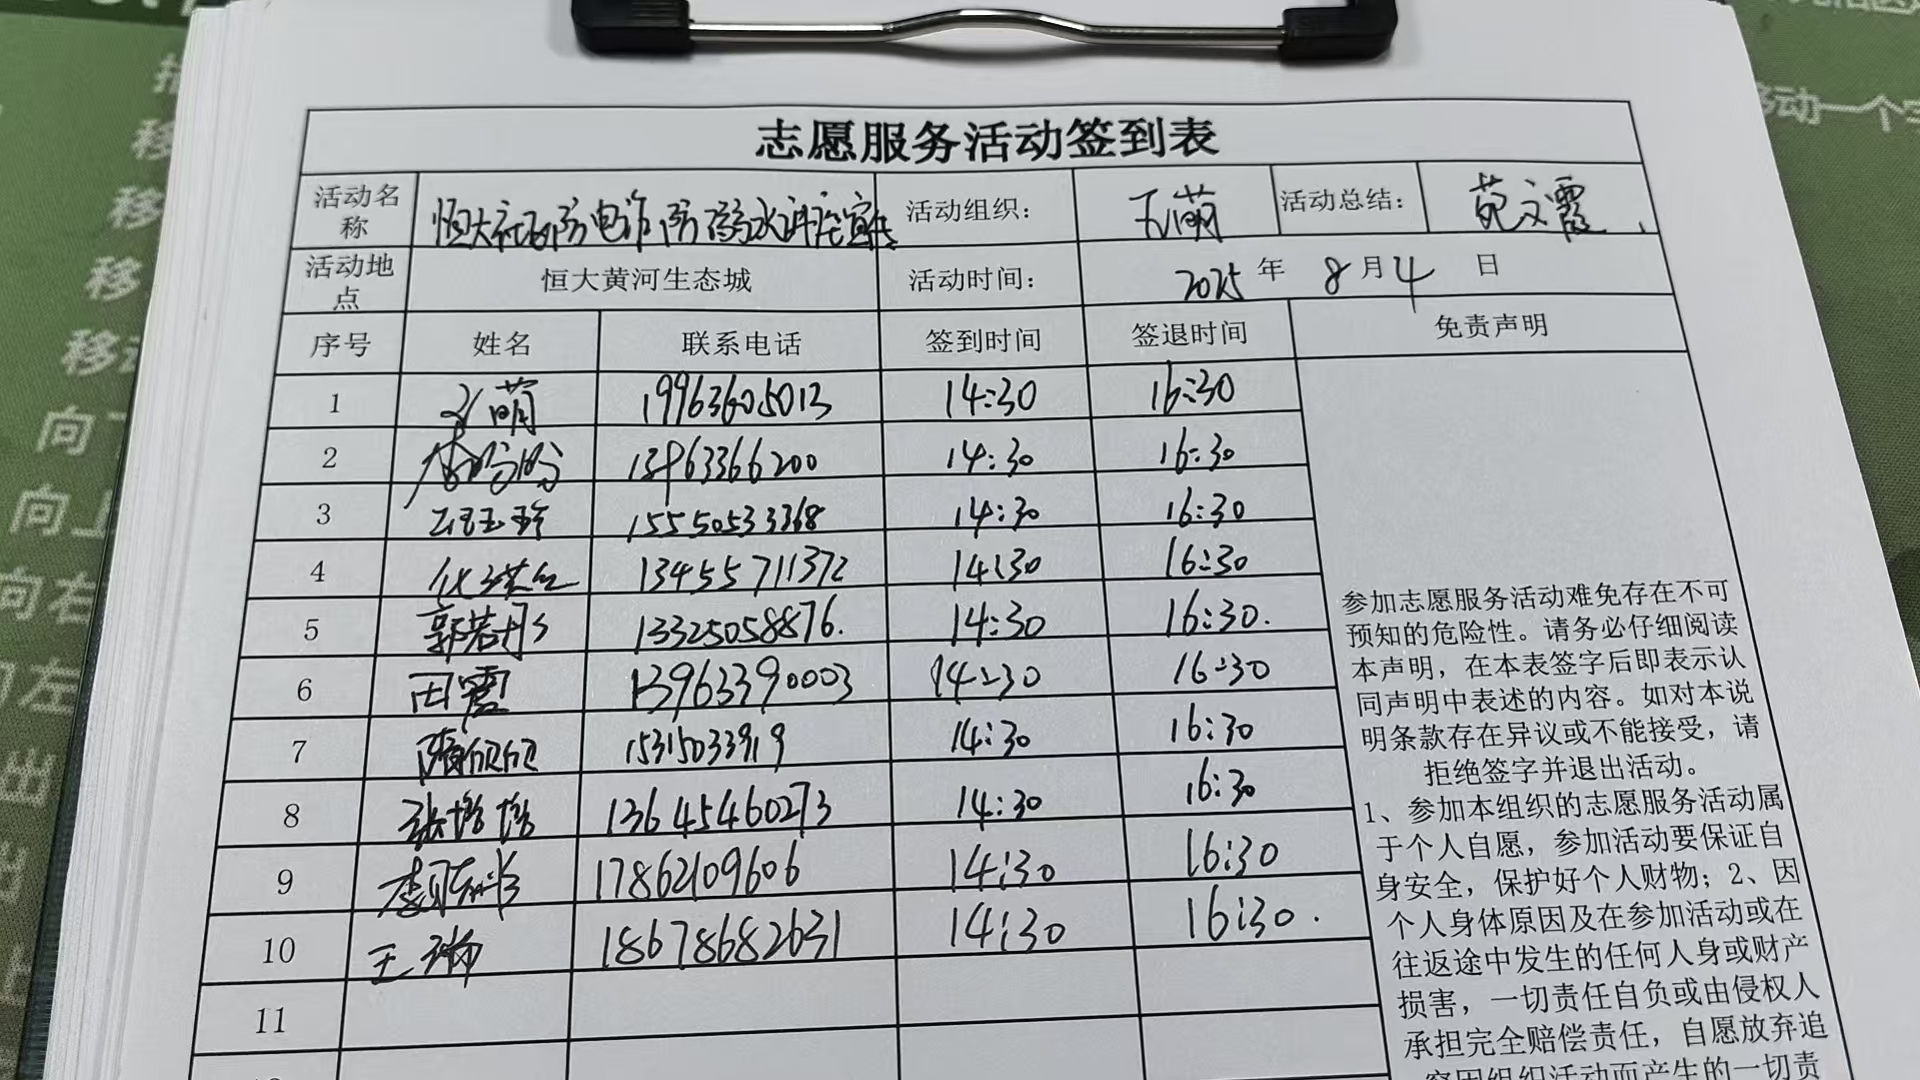 志愿服务活动签到表
活动名称 恒大社区防电诈防溺水讲座宣传 活动组织： 王萌 活动总结： 苑文霞
活动地点 恒大黄河生态城 活动时间： 2025 年 8 月 4 日
序号 姓名 联系电话 签到时间 签退时间 免责声明
1 萌 19963605013 14:30 16:30
2 13963366200 14:30 16:30
3 15550533368 14:30 16:30
4 13455711372 14:30 16:30
5 郭若彤 13325058876. 14:30 16:30.
6 田霞 13963390003 14:30 16:30
7 15315033919 14:30 16:30
8 张增增 13645460273 14:30 16:30
9 17862109606 14:30 16:30
10 王瑞 18678682631 14:30 16:30.
11
参加志愿服务活动难免存在不可
预知的危险性。请务必仔细阅读
本声明，在本表签字后即表示认
同声明中表述的内容。如对本说
明条款存在异议或不能接受，请
拒绝签字并退出活动。
1、参加本组织的志愿服务活动属
于个人自愿，参加活动要保证自
身安全，保护好个人财物；2、因
个人身体原因及在参加活动或在
往返途中发生的任何人身或财产
损害，一切责任自负或由侵权人
承担完全赔偿责任，自愿放弃追
究因组织活动而产生的一切责
移动一个字
移
移
移
向
向上
向右
向左
出
出